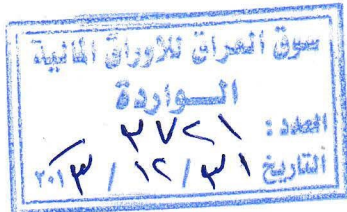 سوق العراق للأوراق المالية
الواردة
العدد : ٣٧٢١
التاريخ ٣١ / ١٢ / ٢٠١٣